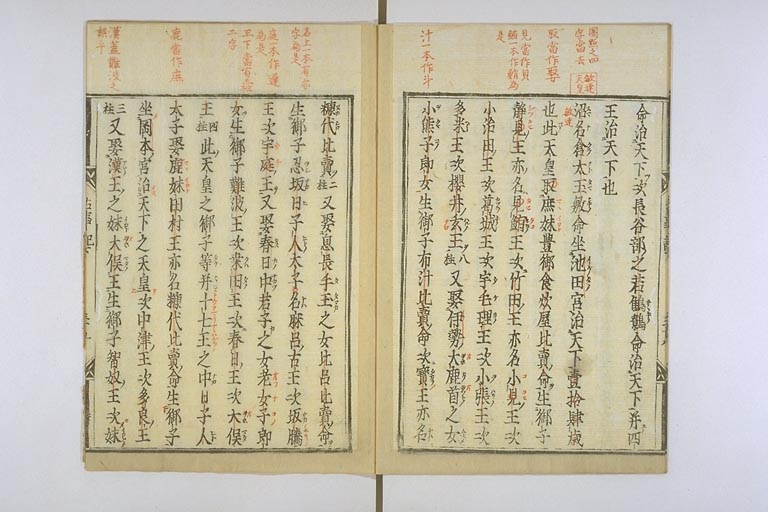 命治天下次長谷部之若鷦鷯命治天下幷四
王治天下也
沼名倉太玉敷命坐池田宮治天下壹拾肆歲
也此天皇取庶妹豊御食炊屋比賣命生御子
靜見王亦名見鮹王次竹田王亦名小見王次
小治田王次葛城王次宇毛理王次小張王次
多米王次櫻井玄王八柱又娶伊勢大鹿首之女
小熊子郞女生御子布汁比賣命次寶王亦名
糠代比賣二柱又娶息長手王之女比呂比賣命
生御子忍坂日子人太子亦名麻呂古王次坂騰
王次宇庭王又娶春日中若子之女老女子郞
女生御子難波王次桒田王次春日王次大俣
王四柱此天皇之御子等幷十七王之中日子人
太子娶鹿妹田村王亦名糠代比賣命生御子
坐岡本宮治天下之天皇次中津王次多良王
三柱又娶漢王之妹大俣王生御子智奴王次妹
字當去
敏達天皇
取當作娶
見當作貝
鮹一本作鮹爲是
汁一本作斗
庭一本作遲爲是
王下當有
二字
鹿當作庶
漢蓋難波之
誤